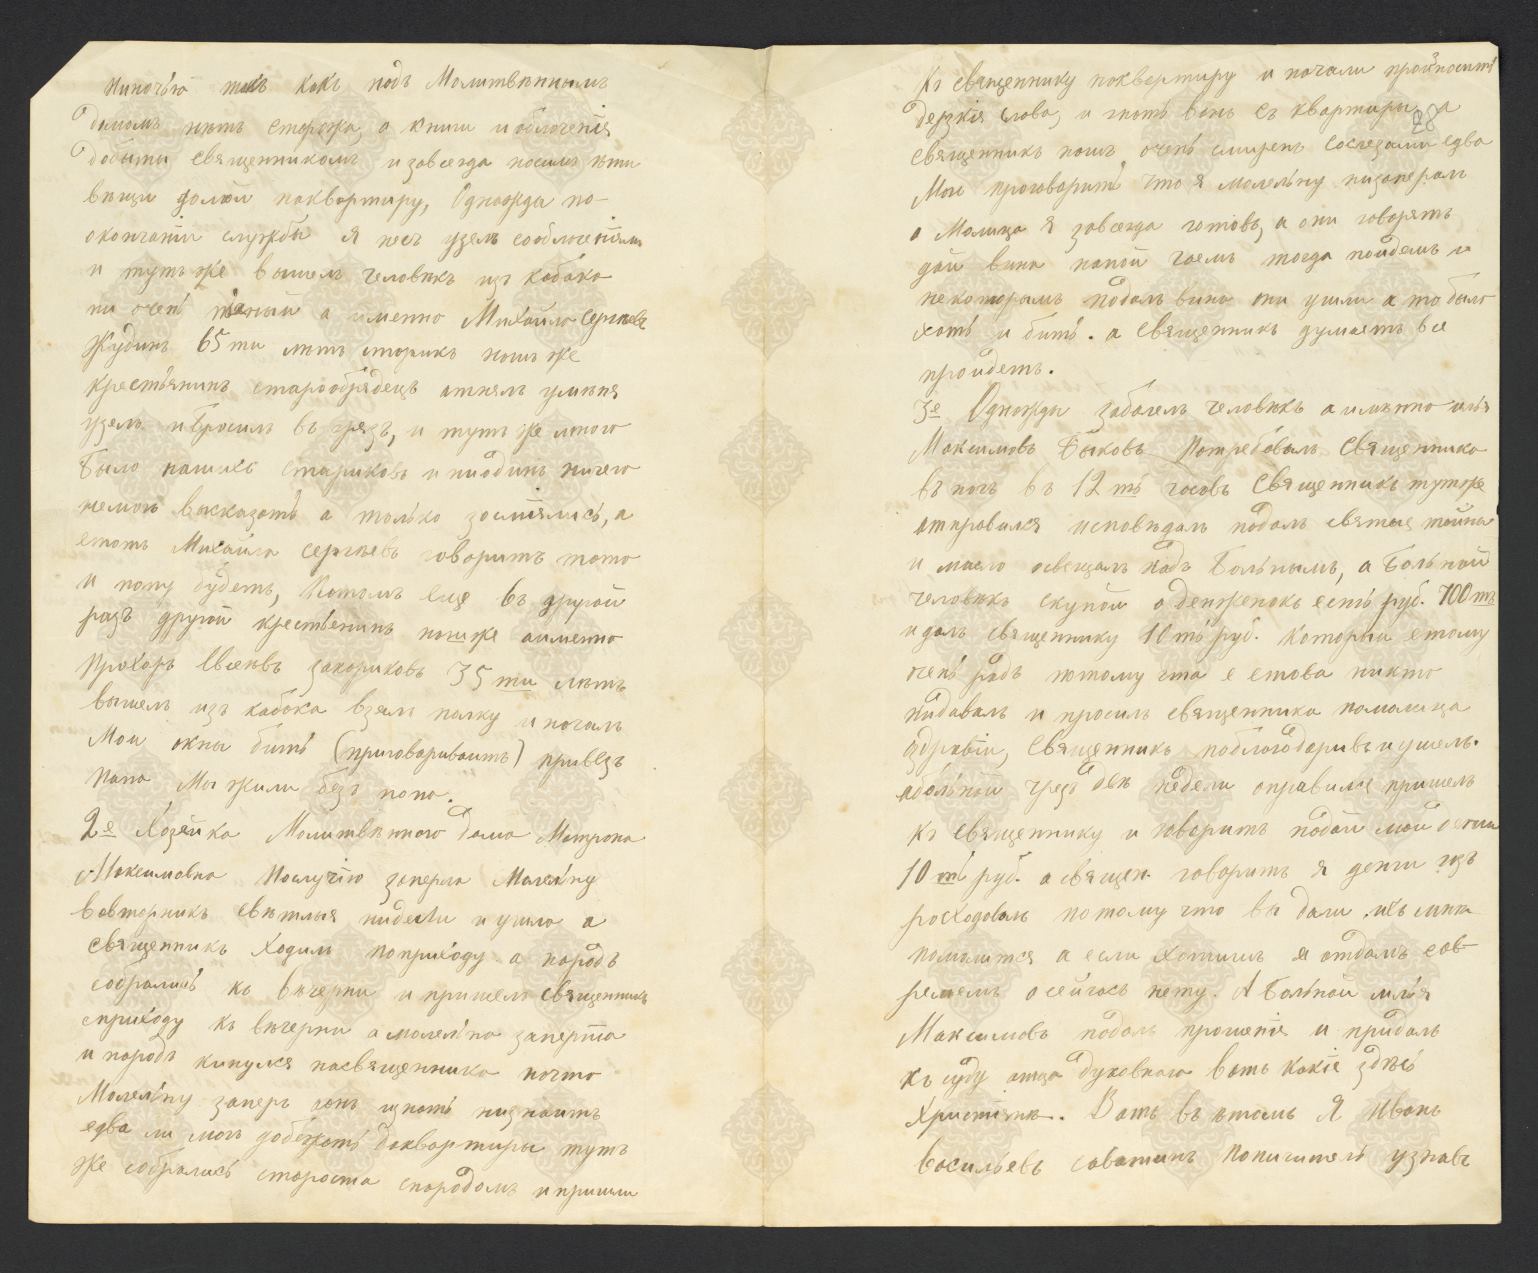 Ниночью такъ какъ подъ Молитвѣннымъ
домомъ нѣтъ сторожа, а книги и облоченія
добыты священникомъ и завсегда носимъ ѣти
вѣщи долой наквартиру, Однажда по-
окончаніи службы я несъ узелъ сооблоченіями
и тутъ же вышелъ человѣкъ изъ кабака
ни очень пяный а именно Михайло Сергѣевъ
Жудинъ 65 ти лѣтъ старикъ нашъ же
крестьянинъ старообрядецъ атнялъ уминя
узелъ и бросилъ въ грязъ, и тутъ же много
было нашихъ стариковъ и ниодинъ ничего
немогъ высказать а только засмѣялись, а
етотъ Михайло Сергѣевъ говоритъ тото
и попу будетъ, Потомъ еще въ другой
разъ другой крестьенинъ нашже аименно
Прохоръ Евсѣевъ 35 ти лѣтъ
вышелъ изъ кабака взялъ палку и началъ
Мои окны бить (приговариваитъ) привезъ
попа Мы жили безъ попа.
2е Хозяйка Молитвѣнного дома Матрона
Максимовна Послучію заперла Малельну
вовторникъ свѣтлыя нидели и ушла а
священникъ ходилъ поприходу а народъ
собрались къ вѣчерни и пришелъ священникъ
сприходу къ вѣчерни а молельна заперта
и народъ кинулся насвященника почто
Молельну заперъ онъ изнать низнаитъ
едва ли могъ добежать доквартиры тутъ
же собрались староста снародомъ и пришли
28
Къ священнику наквартиру и начали произносить
дерзкія слова, и гнать вонъ съ квартиры, а
священникъ нашъ очень смиренъ сослезами едва
Могъ проговорить что я молельну низапералъ
а Молица я завсегда готовъ, а они говорятъ
дай вина напой чаемъ тогда пойдемъ и
некоторамъ подалъ вина они ушли а то было
хоть и бить. а священникъ думаетъ все
пройдетъ.
3е Однажды заболелъ человѣкъ а именно илья
Максимовъ Быковъ Потребовалъ Священника
въ ночь въ 12 ть часовъ Священникъ тутже
атправился исповѣдалъ подалъ святыя тайны
и масло освещалъ надъ Больнымъ, а Больной
человѣкъ скупой а денженокъ есть руб. 700 тъ
и далъ священнику 10 ть руб. который етому
очень радъ потому что е етова никто
нидавалъ и просилъ священника помолица
оздравіи, Священникъ поблагодаривъ и ушелъ.
абольной чрезъ двѣ недели оправился пришелъ
къ Священнику и говоритъ подай мои денги
10 ть руб. а священ. говоритъ я денги изъ
росходовалъ потому что вы дали ихъ мнѣ
помолится а если хотишь я отдамъ сов-
ременемъ а сейчасъ нету. А Больной илья
Максимовъ подалъ прошеніе и придалъ
къ суду отца духовнаго вотъ какіе здѣсь
Христіянѣ. Вотъ въ етомъ Я Иванъ
Васильевъ Саватинъ Попичитель узнавъ